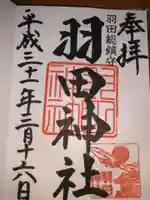 奉拝
羽田総鎮守
羽田神社
平成三十一年三月十六日